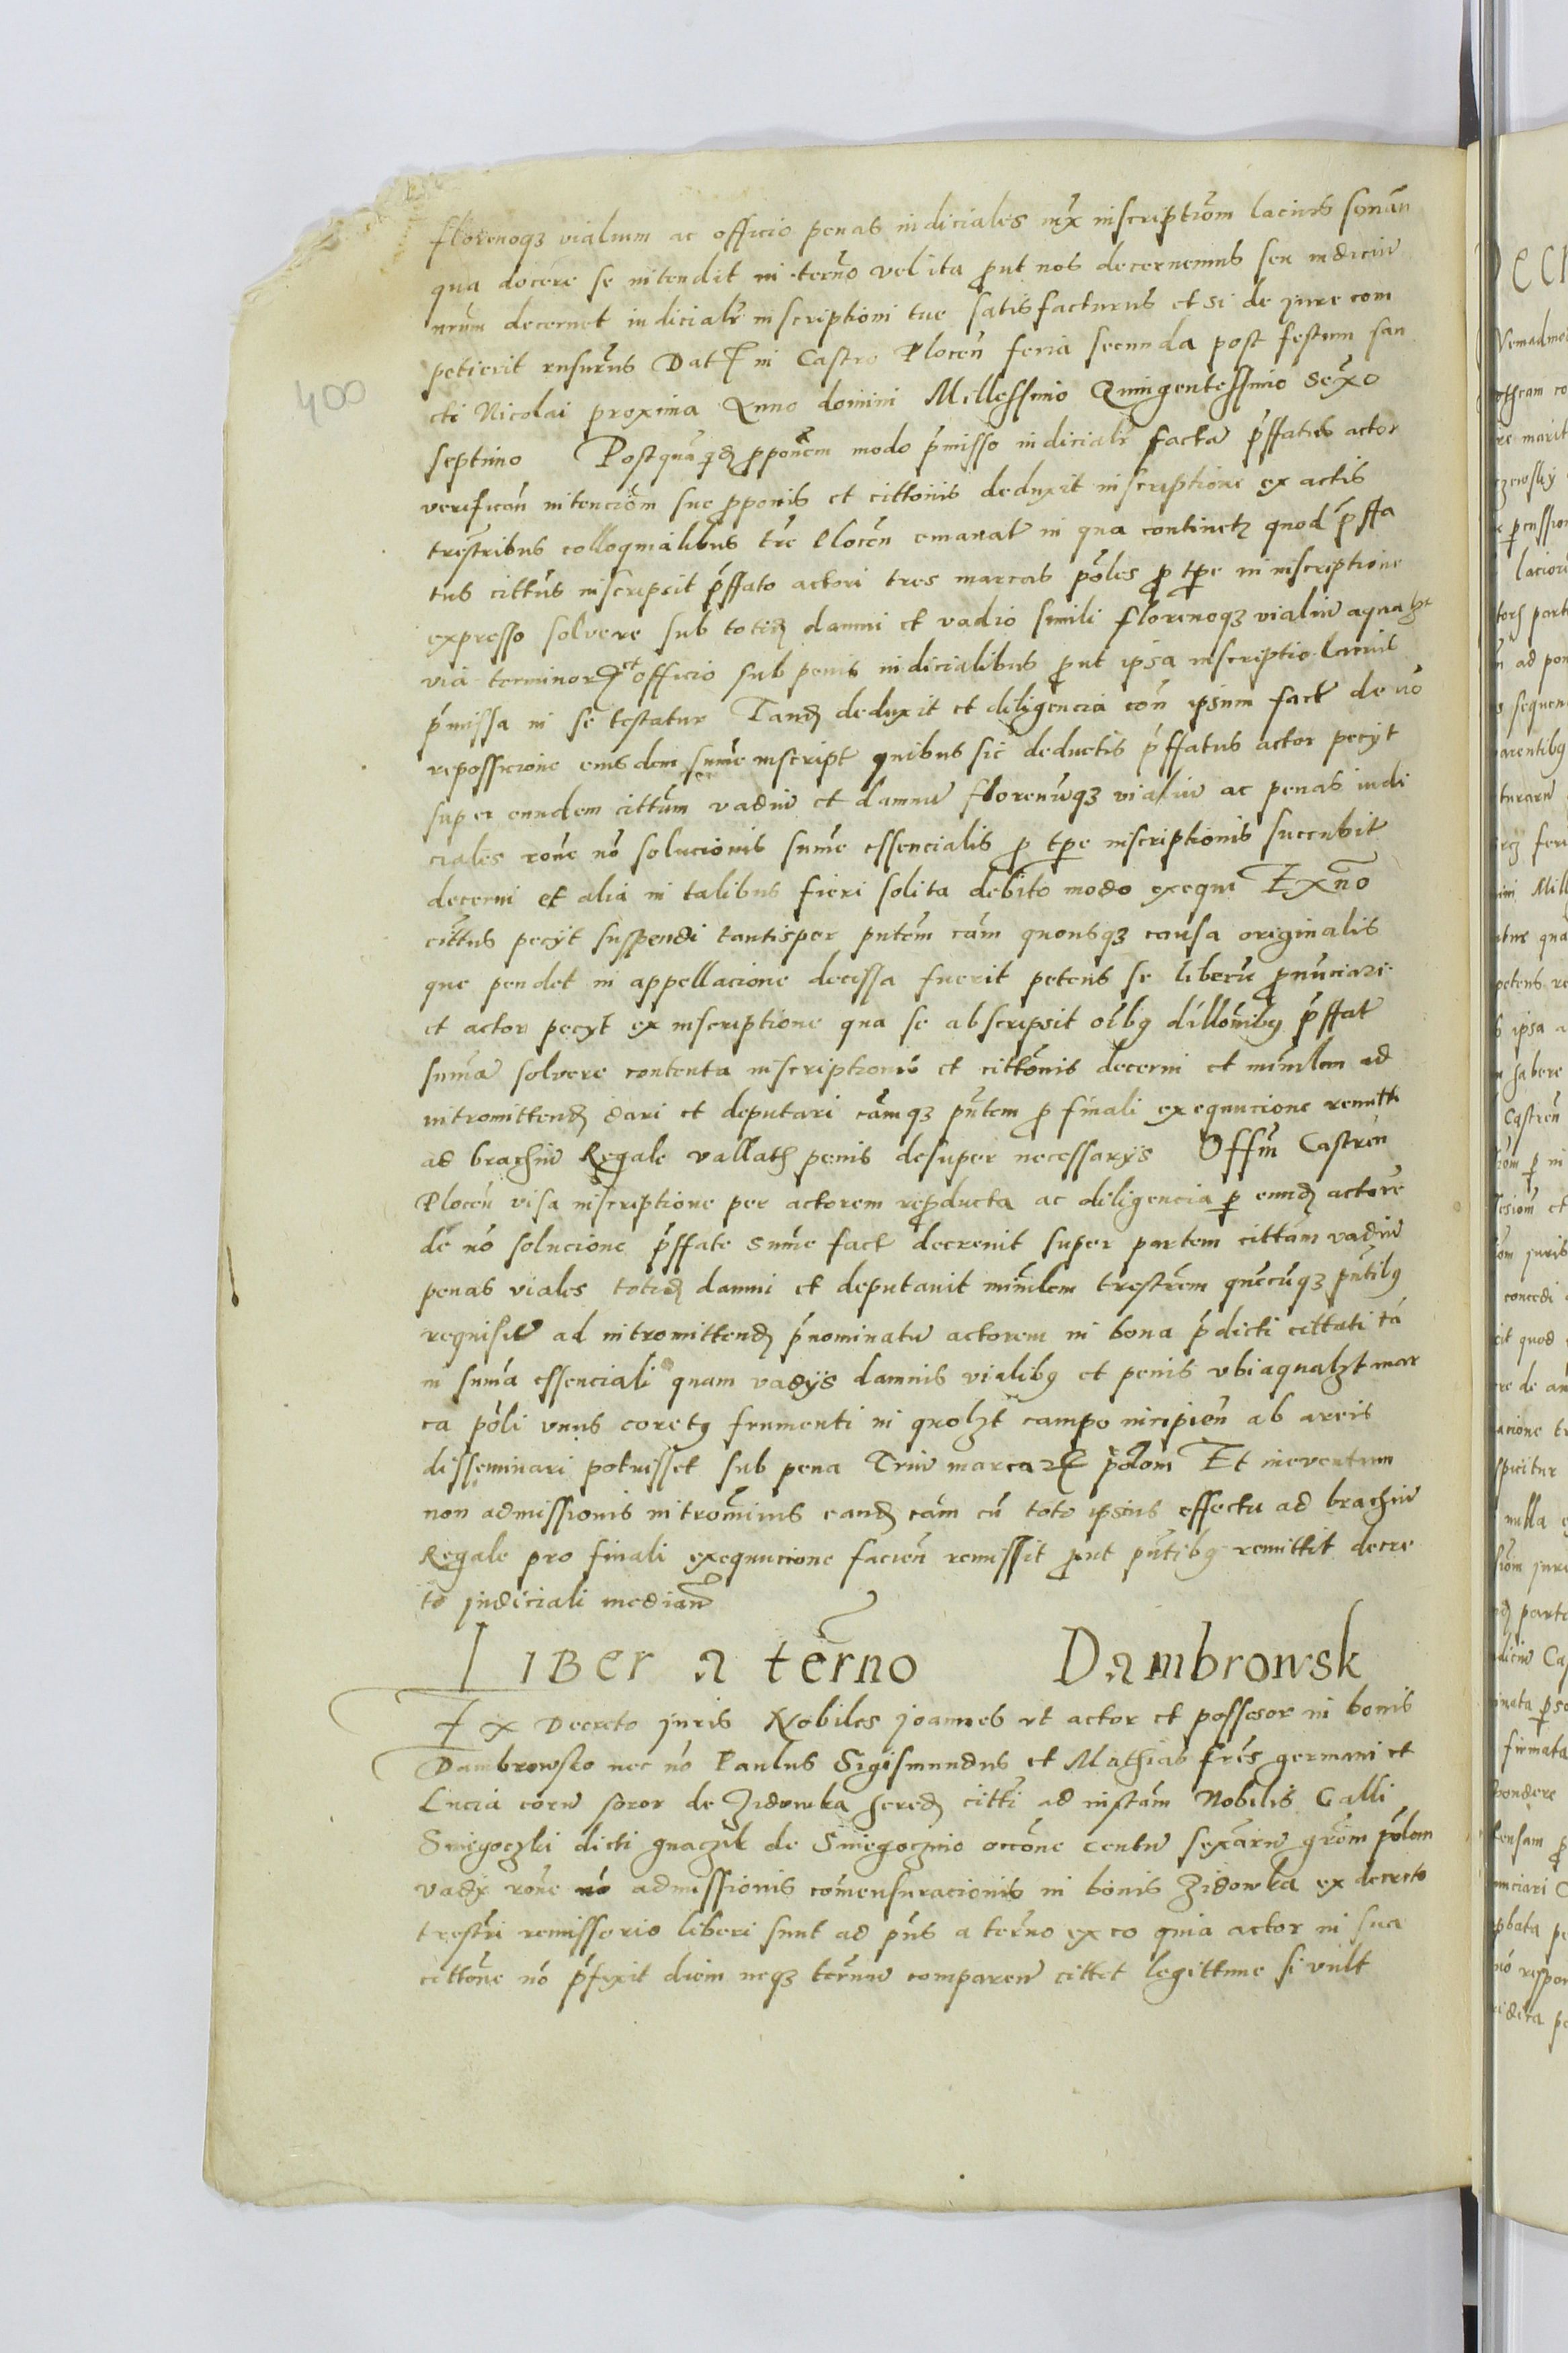 400
florenoqz vialium ac officio penas iudiciales iux inscriptiom lacius sonan
qua docere se intendit in termo vel ita prut nos decernemus seu iudiciu
nrum decernet iudicialr inscriptioni tue satisfacturus et si de jure com
petierit rnsurus Dat in Castro Plocen feria secunda post festum san
cti Nicolai proxima Anno domini Millessimo Quingentessimo Sexo
septimo Postqua qd pponem modo pmisso iudicialr facta pffatus actor
verifican intenciom sue pponis et cittonis deduxit inscriptione ex actis
trestribus colloquialibus tre Plocen emanat in qua continetz quod pffa
tus cittus inscripsit pffato actori tres marcas poles p tpe in inscriptione
expresso solvere sub totid damni et vadio simili florenoqz vialiu a qualzt
via terminor et officio sub penis iudicialibus prut ipsa inscriptio lacius
pmissa in se testatur Tand deduxit et diligencia con ipsum fact de no
repossicione eiusdem sume inscript quibus sic deductis pffatus actor pecyt
super eundem cittum vadiu et damnu florenuqz vialiu ac penas iudi
ciales rone no solucionis sume essencialis p tpe inscriptionis succubit
decerni et alia in talibus fieri solita debito modo exequi Exno
cittus pecyt suspendi tantisper pntem cam quousqz causa originalis
que pendet in appellacione decissa fuerit petens se liberu pnuciari
et actor pecyt ex inscriptione qua se abscripsit oibq dillonibq pffat
suma solvere contenta inscriptionis et cittonis decerni et minlem ad
intromittend dari et deputari camqz pntem p finali exequucione remitti
ad brachiu Regale vallath penis desuper necessarys Offm Castren
Plocen visa inscriptione per actorem repducta ac diligencia p eund actore
de no solucione pffate sume fact decrevit super partem cittam vadiu
penas viales totid damni et deputavit minlem trestrem quecuqz pntibq
requisitu ad intromittend pnominatu actorem in bona pdicti cittati ta
in suma essenciali quam vadys damnis vialibq et penis vbi a qualzt mar
ca poli vnus coretq frumenti in quolzt campo incipien ab areis
disseminari potuisset sub pena Triu marcar polom Et in eventum
non admissionis introminis eand cam cu toto ipsius effectu ad brachiu
Regale pro finali exequucione facien remissit prut pntibq remittit decre
to judiciali median
LIBer a termo Dambrowsk
Ex Decreto juris Nobiles joannes vt actor et possesor in bonis
Dambrowsko nec no Paulus Sigismundus et Mathias fres germani et
Lucia eoru soror de Zidowka hered citti ad instam Nobilis Galli
Smiegoczki dicti gnaczik de Smiegoczino occone centu sexaru grem polom
vady rone no admissionis comensuracionis in bonis Zidowka ex decreto
trestri remissorio liberi sunt ad pns a termo ex eo quia actor in sua
cittone no pfixit diem neqz termu comparen cittet legittime si vult